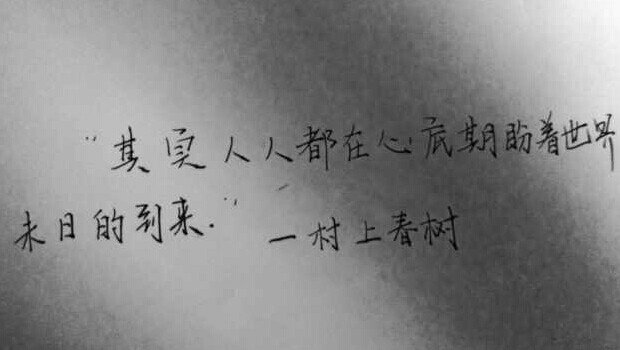 "其实人人都在心底期盼着世界
末日的到来."一村上春树